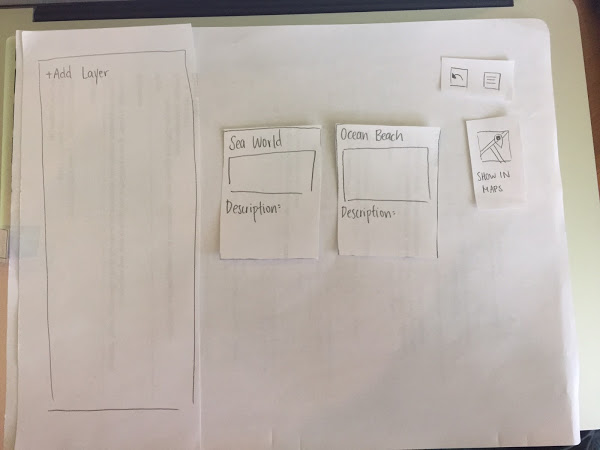 +Add Layer
Sea World
Description:
Ocean Beach
Description:
SHOW IN
MAPS